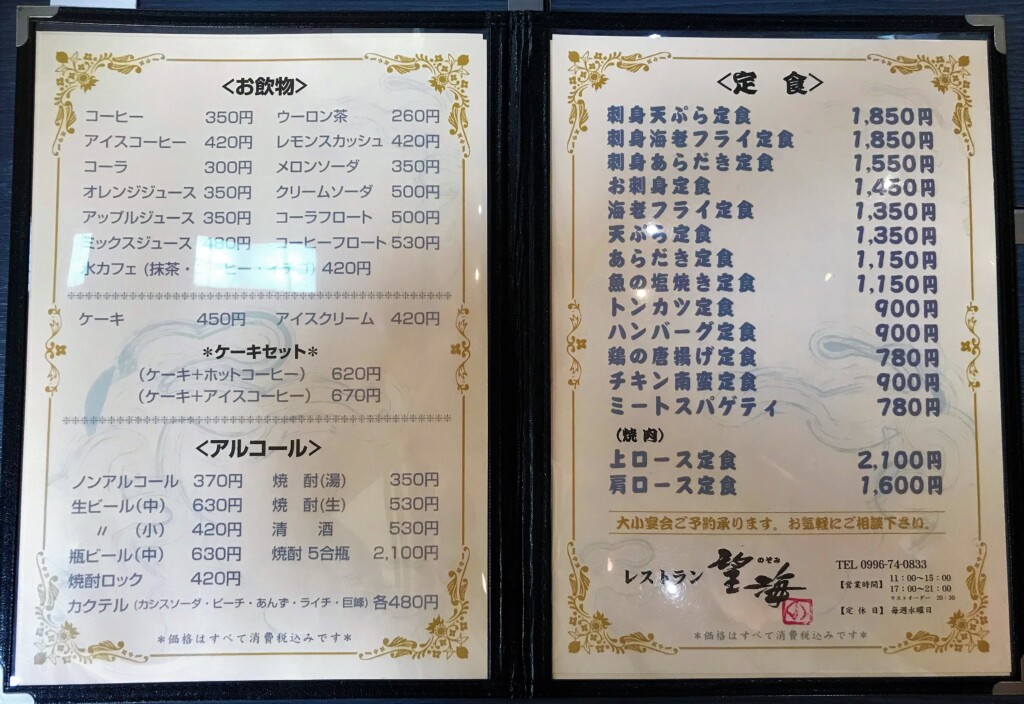 <お飲物>
コーヒー 350円 ウーロン茶 260円
アイスコーヒー 420円 レモンスカッシュ 420円
コーラ 300円 メロンソーダ 350円
オレンジジュース 350円 クリームソーダ 500円
アップルジュース 350円 コーラフロート 500円
ミックスジュース 480円 コーヒーフロート 530円
氷カフェ (抹茶・ 420円
ケーキ 450円 アイスクリーム 420円
*ケーキセット*
(ケーキ+ホットコーヒー) 620円
(ケーキ+アイスコーヒー) 670円
<アルコール>
ノンアルコール 370円 焼 酎(湯) 350円
生ビール(中) 630円 焼 酎(生) 530円
〃 (小) 420円 清 酒 530円
瓶ビール(中) 630円 焼酎 5合瓶 2,100円
焼酎ロック 420円
カクテル (カシスソーダ・ピーチ・あんず・ライチ・巨峰) 各480円
*価格はすべて消費税込みです*
<定 食>
刺身天ぷら定食 1,850円
刺身海老フライ定食 1,850円
刺身あらだき定食 1,550円
お刺身定食 1,450円
海老フライ定食 1,350円
天ぷら定食 1,350円
あらだき定食 1,150円
魚の塩焼き定食 1,150円
トンカツ定食 900円
ハンバーグ定食 900円
鶏の唐揚げ定食 780円
チキン南蛮定食 900円
ミートスパゲティ 780円
(焼肉)
上ロース定食 2,100円
肩ロース定食 1,600円
大小宴会ご予約承ります。お気軽にご相談下さい。
レストラン 望海 のぞみ
TEL 0996-74-0833
【営業時間】 11:00~15:00
17:00~21:00
ラストオーダー 20:30
【定休日】 毎週水曜日
*価格はすべて消費税込みです*